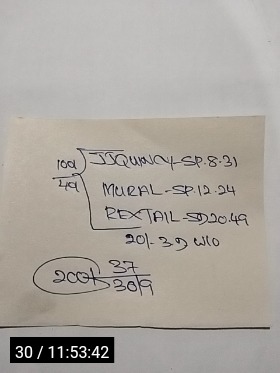 100 JJQUINCY-SP.8.31
40 MURAL-SP.12.24
REXTAIL-SP20.49
20/- 3D W/O
200/- 37
30/9
30 / 11:53:42